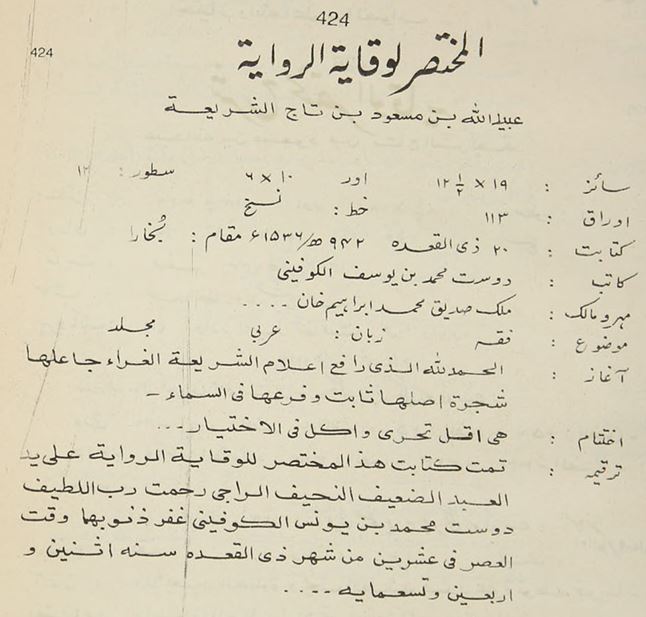 424
424
المختصر لوقاية الرواية
عبيد الله بن مسعود بن تاج الشريعة
سائز : ١٩ × ١٢ ١/٢ اور ١٠ × ٦ سطور : ١٢
اوراق : ١١٣ خط : نسخ
كتابت : ٢٠ ذى القعده ٩٤٢ھ/١٥٣٦ء مقام : بُخارا
كاتب : دوست محمد بن يوسف الكوفينى
مہر و مالك : ملك صديق محمد ابراہيم خان ....
موضوع : فقہ زبان : عربي مجلد
آغاز : الحمد لله الذى رافع اعلام الشريعة الغراء جاعلها
شجرة اصلها ثابت و فرعها فى السماء -
اختتام : هى اقل تحرى و اكل فى الاختيار...
ترقيمہ : تمت كتابت هذ المختصر للوقاية الرواية على يد
العبد الضعيف النحيف الراجى رحمت رب اللطيف
دوست محمد بن يونس الكوفينى غفر ذنوبهما وقت
العصر فى عشرين من شهر ذى القعده سنه اثنين و
اربعين و تسعمايه ....